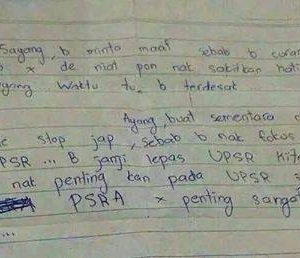 Sayang, b minta maaf sebab b curan
x de niat pon nak sakitkan hati
yang Waktu tu, b terdesak
Ayang, buat sementara
stop jap, sebab b nak fokus
UPSR ... B janji lepas UPSR kita
nak penting kan pada UPSR
PSRA x penting sanga
...